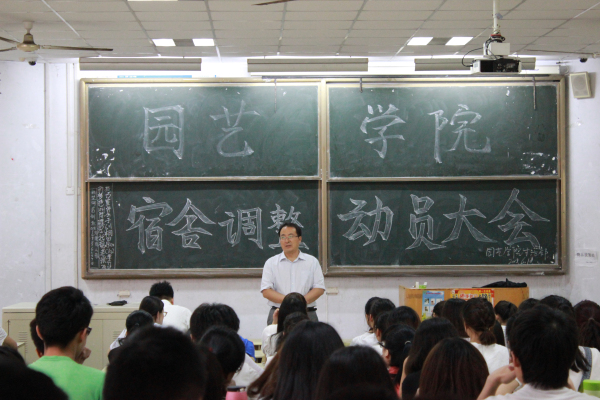 园艺学院
宿舍调整动员大会